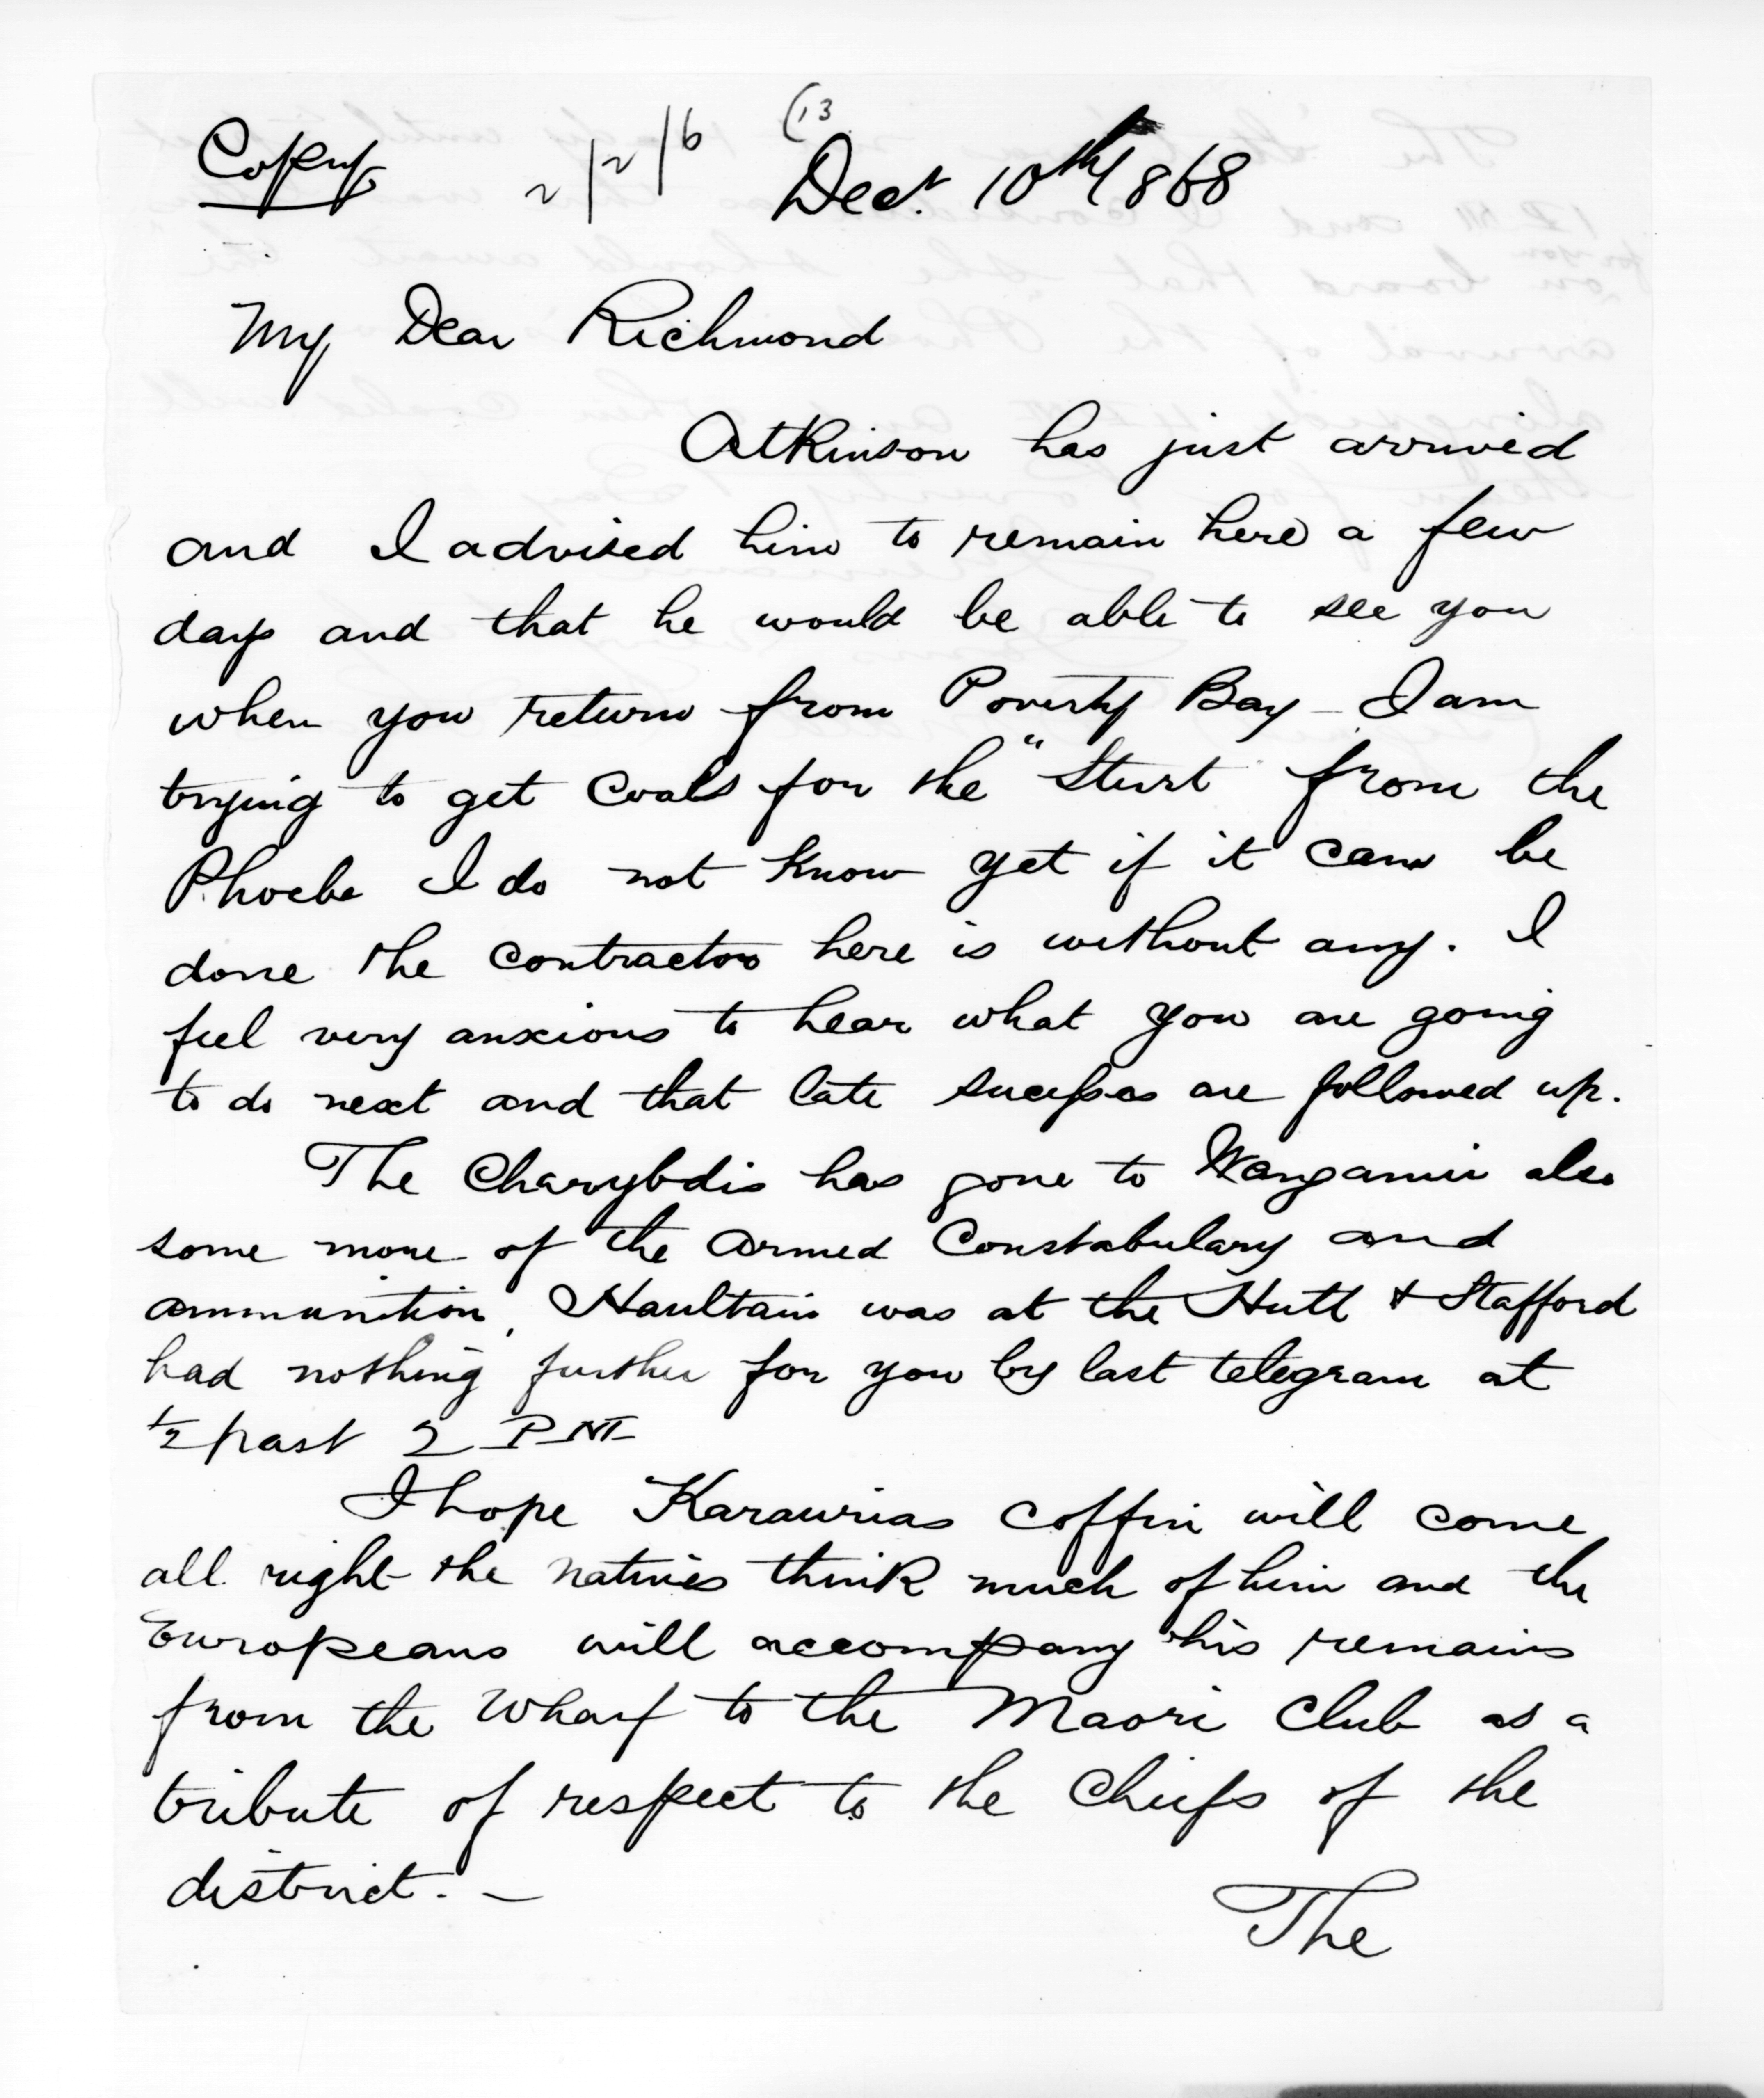 Copy 2/2/6 (13 Dec. 10th 1868
My Dear Richmond
Atkinson has just arrived
and I advised him to remain here a few
days and that he would be able to see you
when you return from Poverty Bay – I am
trying to get Coals for the "Sturt from the
Phoebe I do not know yet if it can be
done the contractor here is without any. I
feel very anxious to hear what you are going
to do next and that late successes are followed up.
The Charybdis has gone to Wanganui also
some more of the Armed Constabulary and
ammunition, Haultain was at the Hutt & Stafford
had nothing further for you by last telegram at
½ past 2 PM
I hope Karaurias coffin will come
all right the natives think much of him and the
Europeans will accompany his remains
from the Wharf to the Maori Club as a
tribute of respect to the Chiefs of the
district. –
The